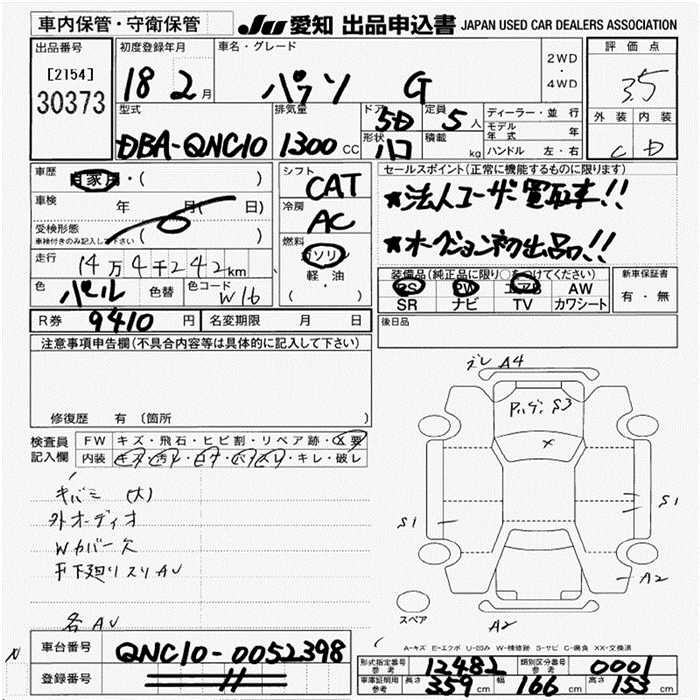 車内保管・守衛保管
JU 愛知 出品申込書 JAPAN USED CAR DEALERS ASSOCIATION
出品番号
[2154]
30373
初度登録年月
18 2月
車名・グレード
パッソ G
2WD
・
4WD
評価点
3.5
外装 内装
C D
型式
DBA-QNC10
排気量
1300cc
ドア
5D
形状
ハコ
定員
5人
積載
kg
ディーラー・並行
モデル年式 年
ハンドル 左・右
車歴
自家用・( )
車検
年 月( 日)
受検形態
車検付きのみ記入して下さい ( )
走行
14万4千242km
色
パール
色替
色コード
W16
R券 9410円
名変期限 月 日
シフト
CAT
冷房
AC
燃料
ガソリン
軽・油
( ・ )
セールスポイント(正常に機能するものに限ります)
★法人ユーザー買取車!!
★オークション初出品!!
装備品(純正品に限り○をつけてください)
PS PW エアB AW
SR ナビ TV カワシート
新車保証書
有・無
後日品
注意事項申告欄(不具合内容等は具体的に記入して下さい)
修復歴 有 〔箇所 〕
検査員記入欄
FW キズ・飛石・ヒビ割・リペア跡・X要
内装 キズ・汚レ・コゲ・穴・スレ・キレ・破レ
キバミ (大)
外オーディオ
Wカバー欠
下廻りスリAU
各AU
ズレ A4
S3
×
S1
S1
A2
A2
スペア
A-キズ E-エクボ U-凹み W-補修跡 S-サビ C-腐食 XX-交換済
N
車台番号
QNC10-0052398
登録番号
型式指定番号 参考
12482
類別区分番号 参考
0001
車庫証明用 参考
長さ 359cm 幅 166cm 高さ 153cm